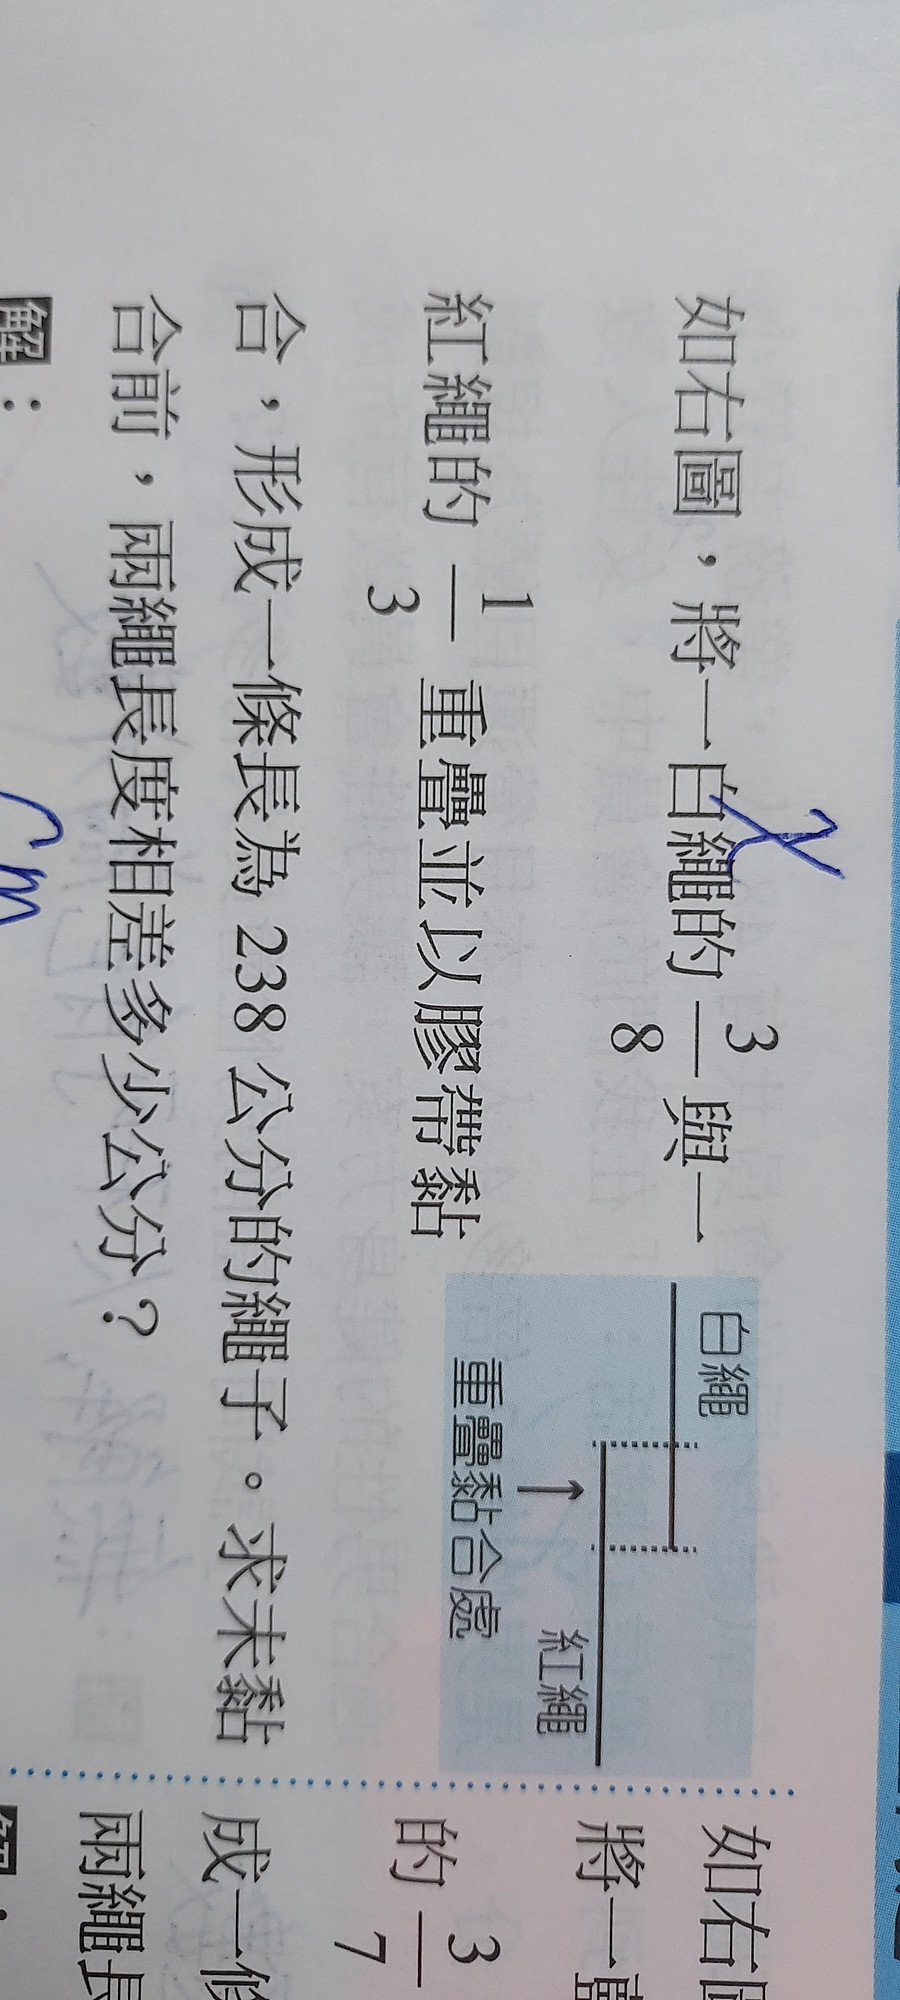 如右圖，將一白繩的 3/8 與一
x
紅繩的 1/3 重疊並以膠帶黏
合，形成一條長為 238 公分的繩子。求未黏
合前，兩繩長度相差多少公分？
解：
cm
白繩
紅繩
重疊黏合處
如右圖
將一
的 3/7
成一條
兩繩長